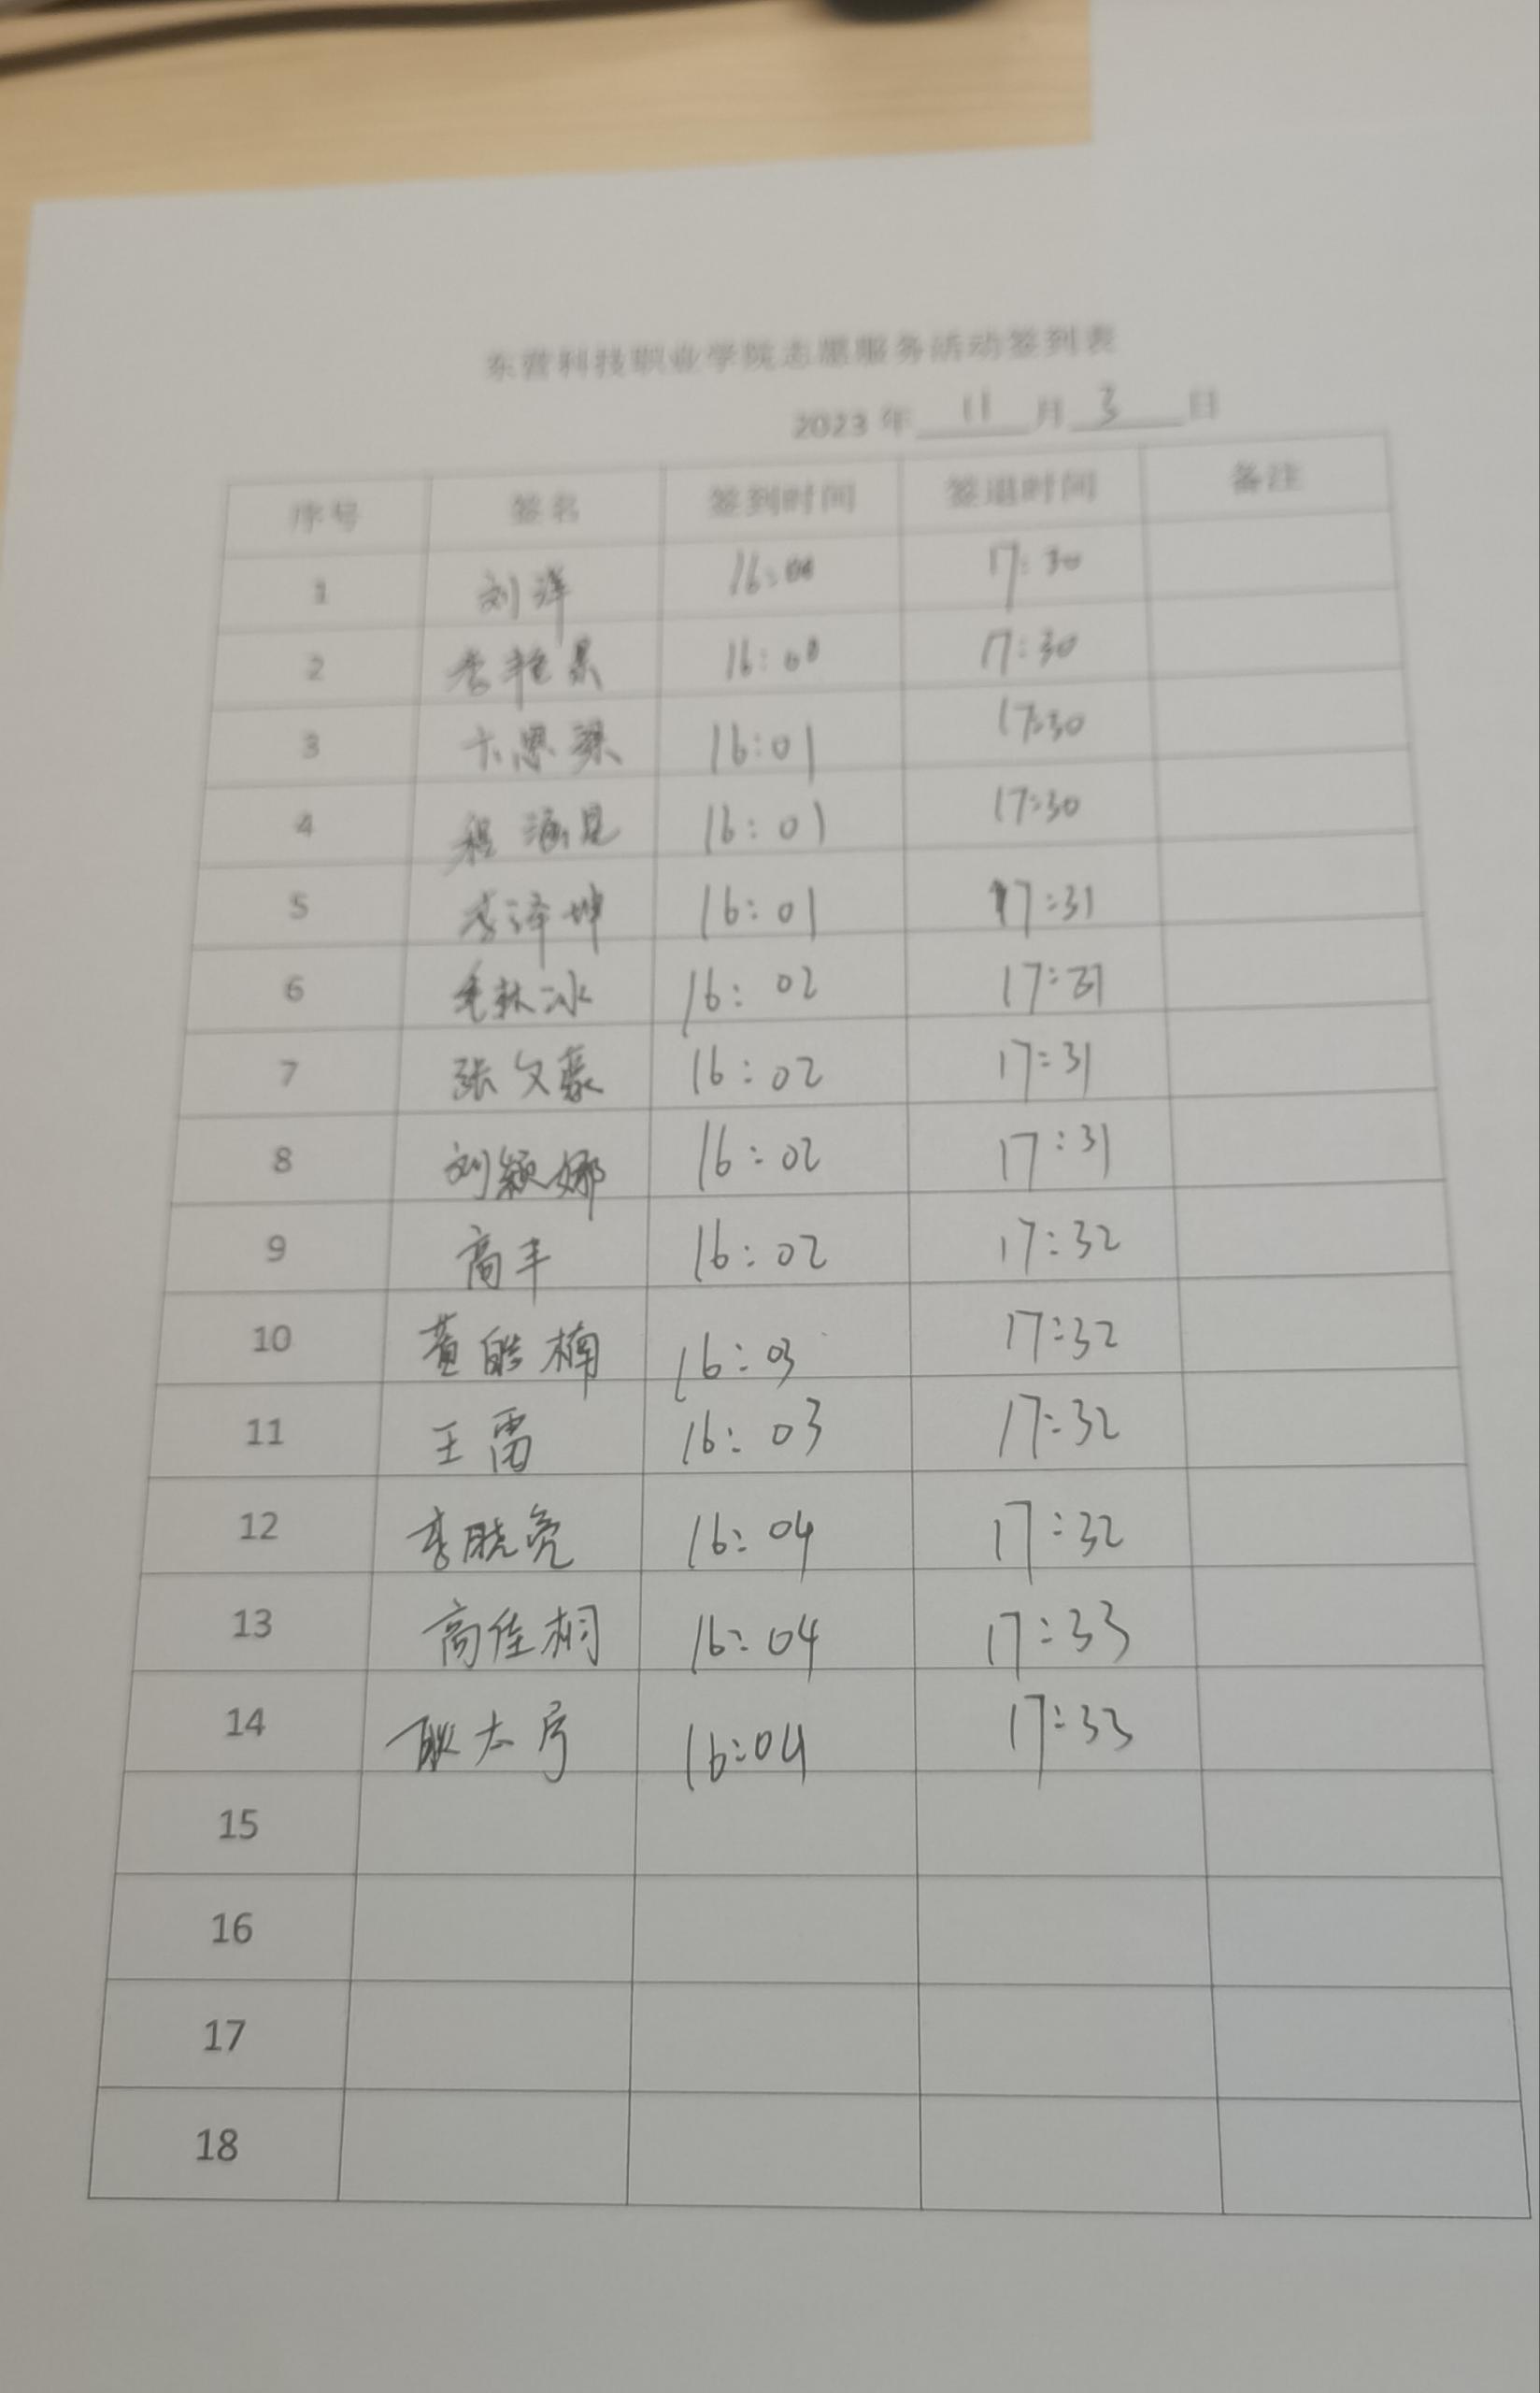 东营科技职业学院志愿服务活动签到表
2023 年 11 月 3 日
序号 签名 签到时间 签退时间 备注
1 刘洋 16:00 17:30
2 李艳景 16:00 17:30
3 卞恩琛 16:01 17:30
4 程 17:30 16:01
5 李泽坤 16:01 17:31
6 毛林冰 16:02 17:31
7 张文豪 16:02 17:31
8 刘颖娜 16:02 17:31
9 高丰 16:02 17:32
10 黄皓楠 16:03 17:32
11 王雷 16:03 17:32
12 李晓亮 16:04 17:32
13 高佳桐 16:04 17:33
14 耿太 16:04 17:33
15
16
17
18